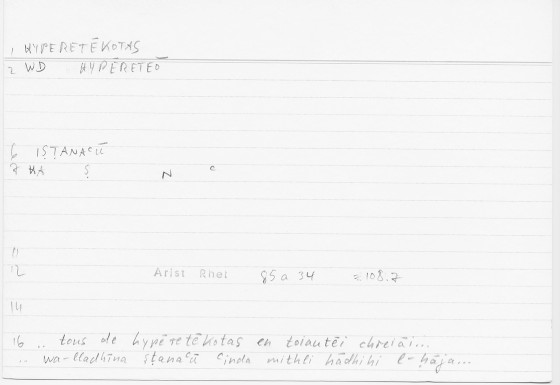 1 HYPERETĒKOTAS
2 WD HYPĒRETEŌ
6 IṢṬANAᶜŪ
7 MA Ṣ N ᶜ
11
12 Arist Rhet 85 a 34 = 108.7
14
16 .. tous de hypēretēkotas en toiautēi chreiāi...
.. wa-lladhīna ṣṭanaᶜū ᶜinda mithli hādhihi l-ḥāja...